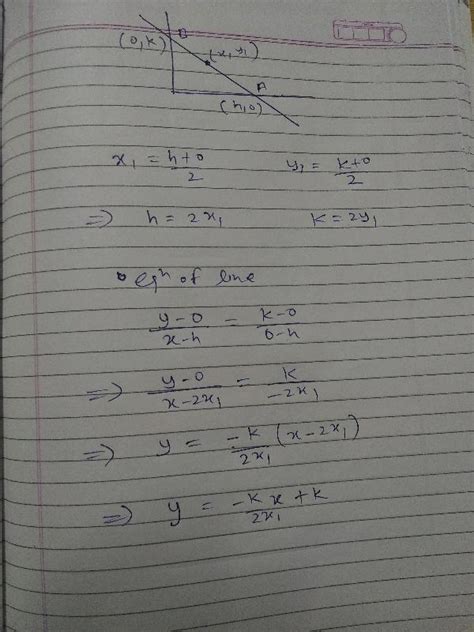 B
(0, k)
(x, y₁)
A
(h, 0)
x₁ = h+0/2    y₁ = k+0/2
⇒ h = 2x₁    k = 2y₁
eqⁿ of line
y-0/x-h = k-0/0-h
⇒ y-0/x-2x₁ = k/-2x₁
⇒ y = -k/2x₁ (x-2x₁)
⇒ y = -kx/2x₁ + k